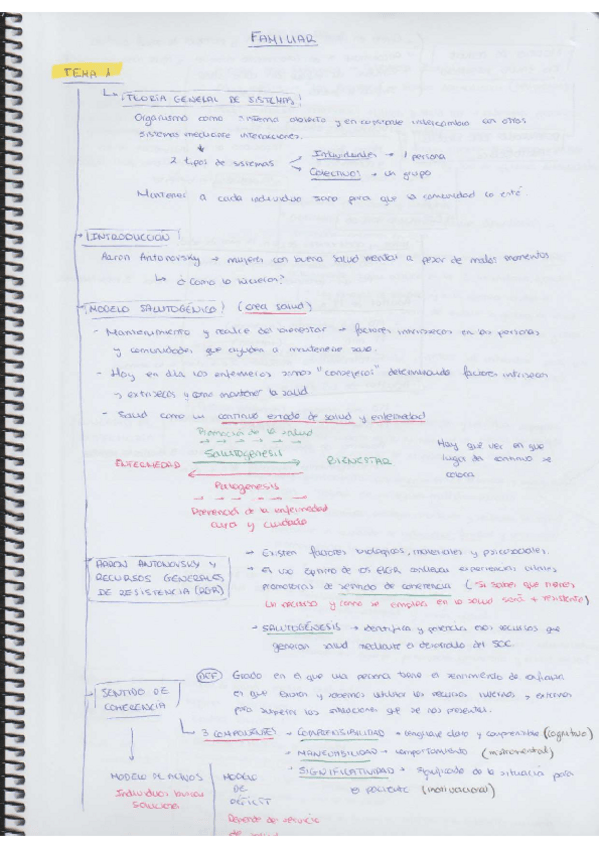 FAMILIAR
TEMA 1
¡TEORÍA GENERAL DE SISTEMAS!
Organismo como sistema abierto y en constante intercambio con otros
sistemas mediante interacciones.
2 tipos de sistemas → Individuales → 1 persona
Colectivos → un grupo
Mantener a cada individuo sano para que la comunidad lo esté.
INTRODUCCION
Aaron Antonovsky → mujeres con buena salud mental a pesar de malos momentos
↳ ¿Cómo lo hicieron?
MODELO SALUTOGÉNICO (crea salud)
- Mantenimiento y realce del bienestar → factores intrínsecos en las personas
y comunidades que ayudan a mantenerse sano.
- Hoy en día los enfermeros somos "consejeros" determinando factores intrínsecos
y extrínsecos y como mantener la salud
- Salud como un continuo estado de salud y enfermedad
Promoción de la salud
Salutogénesis
ENFERMEDAD BIENESTAR
Patogénesis
Prevención de la enfermedad
cura y cuidado
Hay que ver en que
lugar del continuo se
coloca
AARON ANTONOVSKY Y
RECURSOS GENERALES
DE RESISTENCIA (RGR)
→ Existen factores biológicos, materiales y psicosociales.
→ El uso óptimo de los RGR conlleva experiencias vitales
promotoras de sentido de coherencia (Si sabes que tienes
un recurso y como se emplea en la salud será + resistente)
→ SALUTOGÉNESIS → identifica y potencia esos recursos que
generan salud mediante el desarrollo del SOC
SENTIDO DE
COHERENCIA
DEF Grado en el que una persona tiene el sentimiento de confianza
en que existen y podemos utilizar los recursos internos y externos
para superar las situaciones que se nos presentan.
3 COMPONENTES - COMPRENSIBILIDAD → lenguaje claro y comprensible (cognitivo)
- MANEJABILIDAD → comportamiento (instrumental)
- SIGNIFICATIVIDAD → significado de la situación para
el paciente (motivacional)
MODELO DE ACTIVOS
Individuos buscan
soluciones
MODELO
DE
DÉFICIT
Depende de servicio
de salud